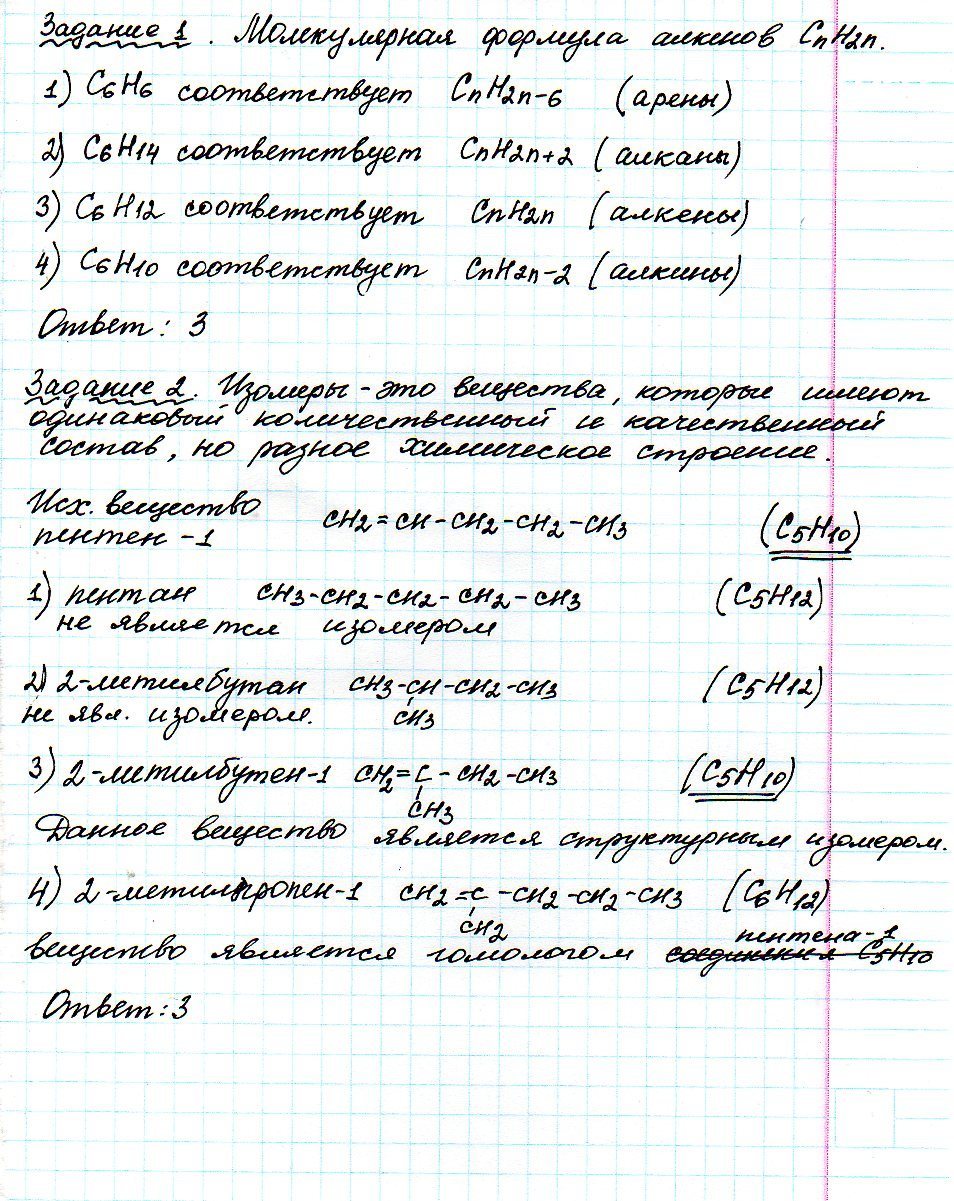 Задание 1. Молекулярная формула алкенов CnH2n.
1) C6H6 соответствует CnH2n-6 (арены)
2) C6H14 соответствует CnH2n+2 (алканы)
3) C6H12 соответствует CnH2n (алкены)
4) C6H10 соответствует CnH2n-2 (алкины)
Ответ: 3
Задание 2. Изомеры - это вещества, которые имеют
одинаковый количественный и качественный
состав, но разное химическое строение.
Исх. вещество
пентен -1 CH2=CH-CH2-CH2-CH3 (C5H10)
1) пентан CH3-CH2-CH2-CH2-CH3 (C5H12)
не является изомером
2) 2-метилбутан CH3-CH-CH2-CH3 (C5H12)
не явл. изомером. CH3
3) 2-метилбутен-1 CH2=C-CH2-CH3 (C5H10)
CH3
Данное вещество является структурным изомером.
4) 2-метилпропен-1 CH2=C-CH2-CH2-CH3 (C6H12)
CH2
пентена-1
вещество является гомологом соединения C5H10
Ответ: 3